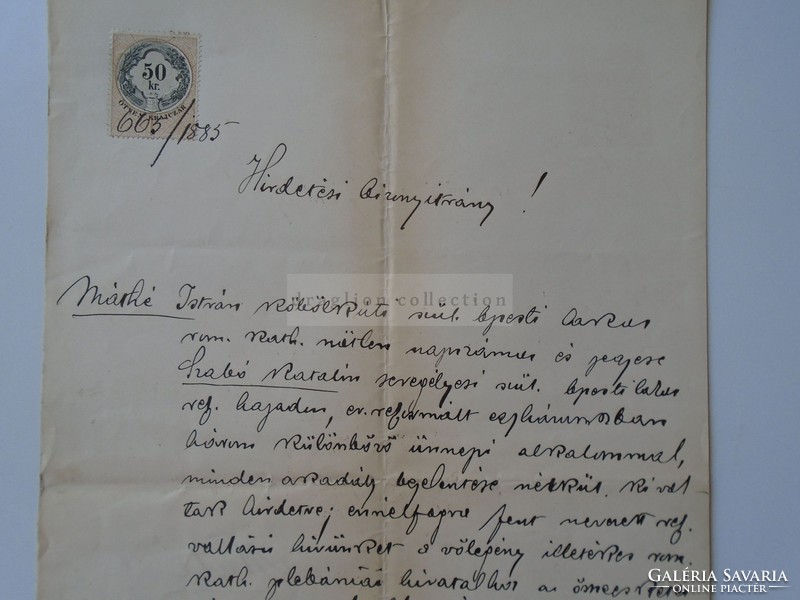 50
kr.
ÖTVEN KRAJCZÁR
663/1885
Hirdetési bizonyitvány!
Máthé István köbölkúti szül. bpesti lakos
rom. kath. nőtlen napszámos és jegyese
Szabó Katalin seregélyesi szül. bpesti lakos
ref. hajadon, ev. reformált egyházunkban
három különböző ünnepi alkalommal,
minden akadály bejelentése nélkül, ki vol
tak hirdetve; ennélfogva fent nevezett ref.
vallásu hivünket a vőlegény illetékes rom.
kath. plebániai hivatalhoz az
dragilion collection
GALÉRIA SAVARIA
ONLINE PIACTÉR